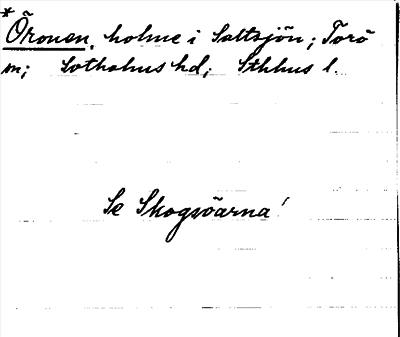 *Öronen, holme i Saltsjön; Torö
sn; Sotholms hd; Sthlms l.
Se Skogsöarna!